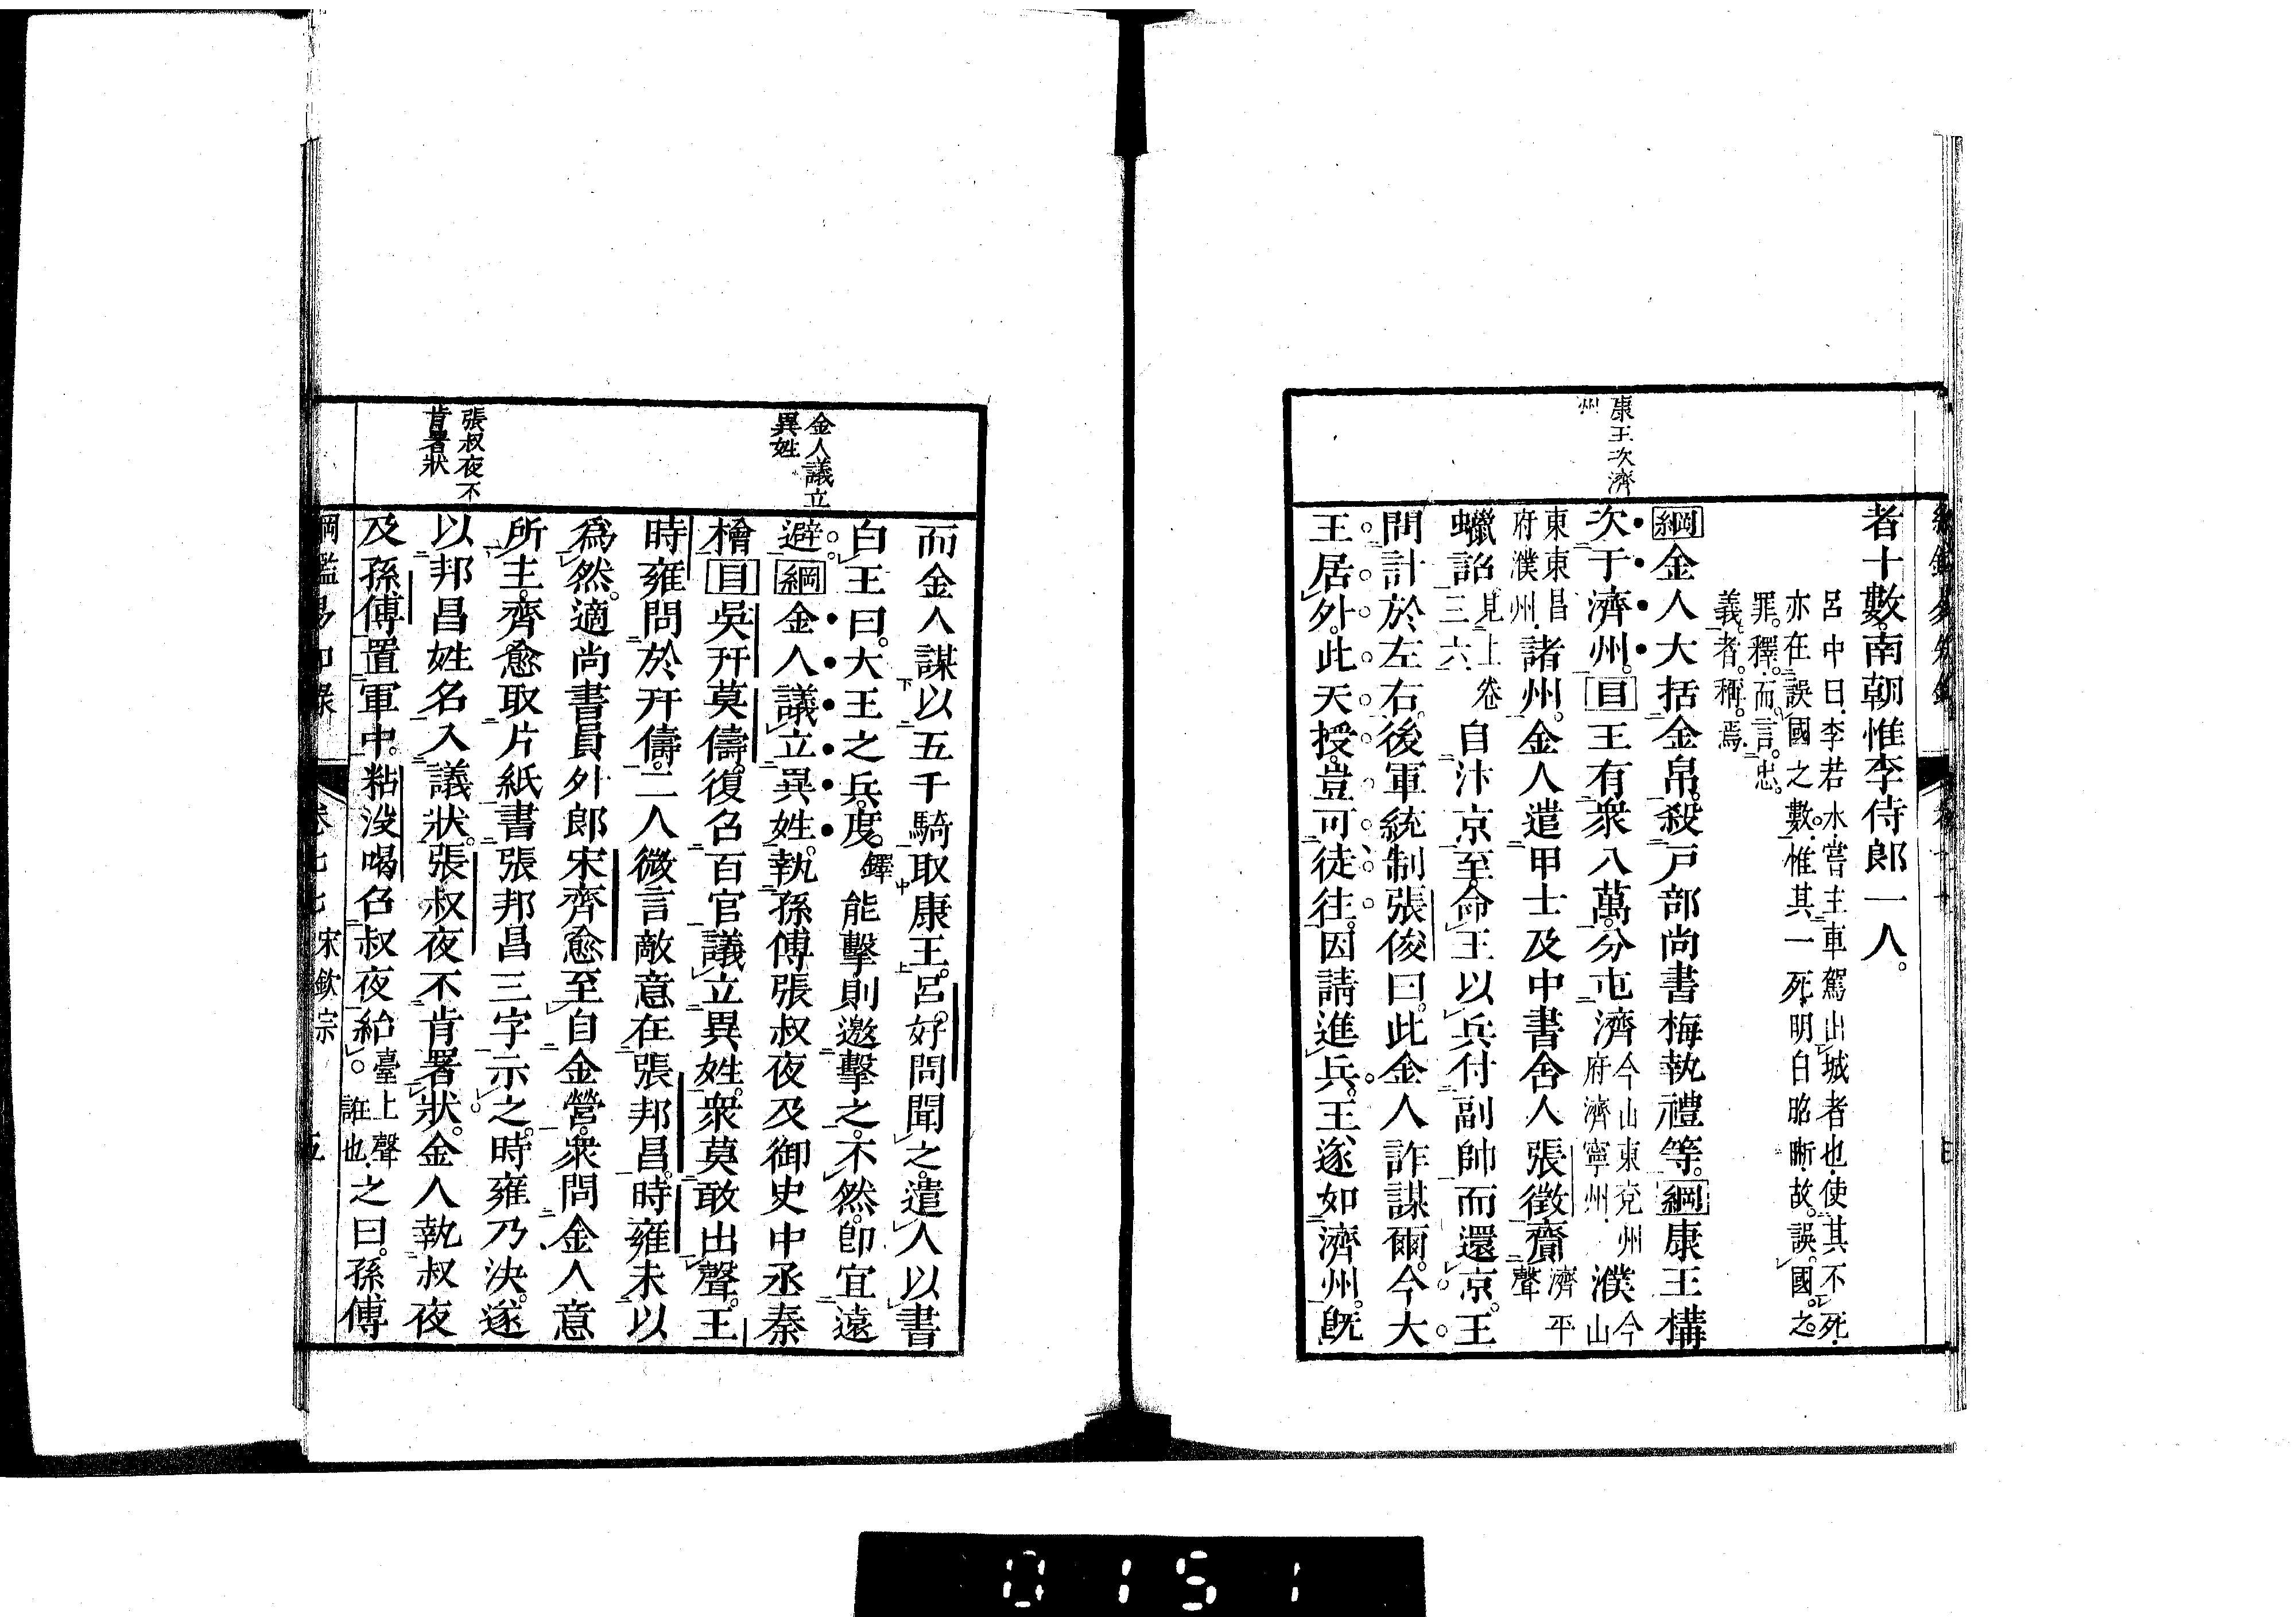 康王次濟
州
者十數。南朝惟李侍郎一人。
呂中曰李若水嘗主車駕出城者也使其不死
亦在誤國之數惟其一死明白昭晣故誤國之
罪釋而言忠
義者稱焉
綱金人大括金帛。殺戸部尚書梅執禮等。綱康王構
次于濟州。目王有衆八萬。分屯濟今山東兗州府濟寧州濮今山
東東昌府濮州諸州。金人遣甲士及中書舍人張徵齎濟平聲
蠟詔見上卷三六自汴京至。命王以兵付副帥而還京。王
問計於左右。後軍統制張俊曰。此金人詐謀爾。今大
王居外。此天授。豈可徒往。因請進兵。王遂如濟州。旣
金人議立
異姓
張叔夜不
肯署狀
而金人謀以五千騎取康王。呂好問聞之。遣人以書
白王曰。大王之兵。度鐸能擊則邀擊之。不然。卽宜遠
避。綱金人議立異姓。執孫傅張叔夜及御史中丞秦
檜目吳幵莫儔。復召百官議立異姓。衆莫敢出聲。王
時雍問於幵儔。二人微言敵意在張邦昌。時雍未以
爲然。適尚書員外郎宋齊愈至自金營。衆問金人意
所主。齊愈取片紙書張邦昌三字示之。時雍乃決。遂
以邦昌姓名入議狀。張叔夜不肯署狀。金人執叔夜
及孫傅置軍中。粘没喝召叔夜紿臺上聲誑也之曰。孫傅
綱鑑易知錄 卷七七 宋欽宗 五
0151